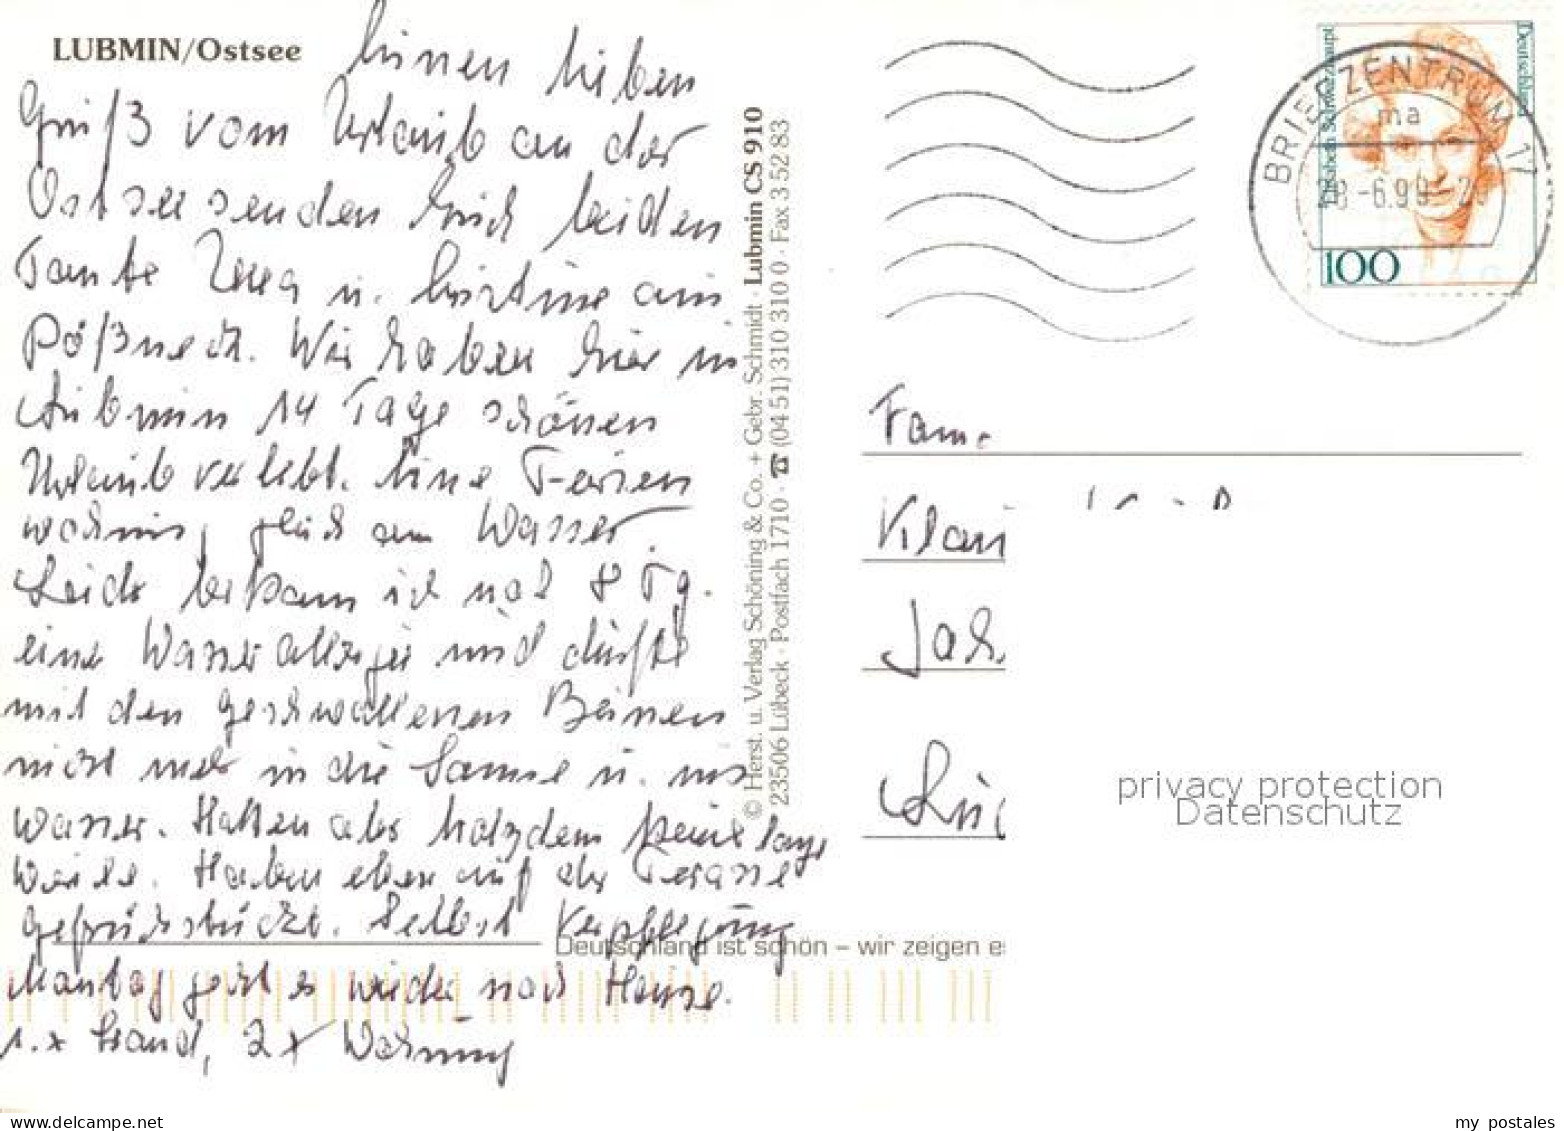 LUBMIN/Ostsee
Einen lieben
Gruß vom Urlaub an der
Ostsee senden Euch beiden
Tante u. aus
Pößneck. Wir haben hier in
Lubmin 14 Tage schönen
Urlaub verlebt. Eine Ferien
wohnung gleich am Wasser.
Leider bekam ich nach 8 Tg.
eine Wasserallergie und durfte
mit den geschwollenen Beinen
nicht mehr in die Sonne u. ins
Wasser. Hatten aber trotzdem keine lange
Weile. Haben eben auf der Terasse
gefrühstückt. Selbst Verpflegung
Montag geht es wieder nach Hause.
1.x Strand, 2 x Wohnung
© Herst. u. Verlag Schöning & Co. + Gebr. Schmidt · Lubmin CS 910
23506 Lübeck · Postfach 1710 · ☎ (04 51) 310 310 0 · Fax 3 52 83
Deutschland ist schön – wir zeigen es
Deutschland
Elisabeth Schwarzhaupt
100
BRIEFZENTRUM 17
ma
-6.99
Fam.
privacy protection
Datenschutz
my postales